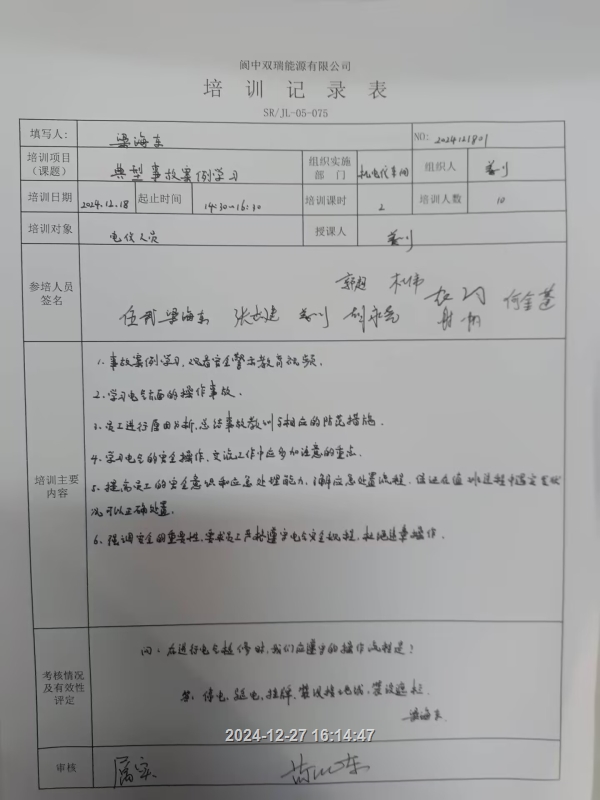 阆中双瑞能源有限公司
培训记录表
SR/JL-05-075
填写人: 梁海东 NO: 2024121801
培训项目（课题） 典型事故案例学习 组织实施部门 机电仪车间 组织人
培训日期 2024.12.18 起止时间 14:30-16:30 培训课时 2 培训人数 10
培训对象 电仪人员 授课人
参培人员签名
伍 梁海东 张 何金莲
培训主要内容
1、事故案例学习、观看安全警示教育视频。
2、学习电气方面的操作事故。
3、员工进行原因分析、总结事故教训与相应的防范措施。
4、学习电气的安全操作、交流工作中应多加注意的重点。
5、提高员工的安全意识和应急处理能力，了解应急处置流程，保证在值班过程中遇突发状
况可以正确处置。
6、强调安全的重要性，要求员工严格遵守电气安全规程，杜绝违章操作。
考核情况及有效性评定
问：在进行电气检修时，我们应遵守的操作流程是？
答：停电、验电、挂牌、装设接地线、装设遮栏。
梁海东
2024-12-27 16:14:47
审核 属实